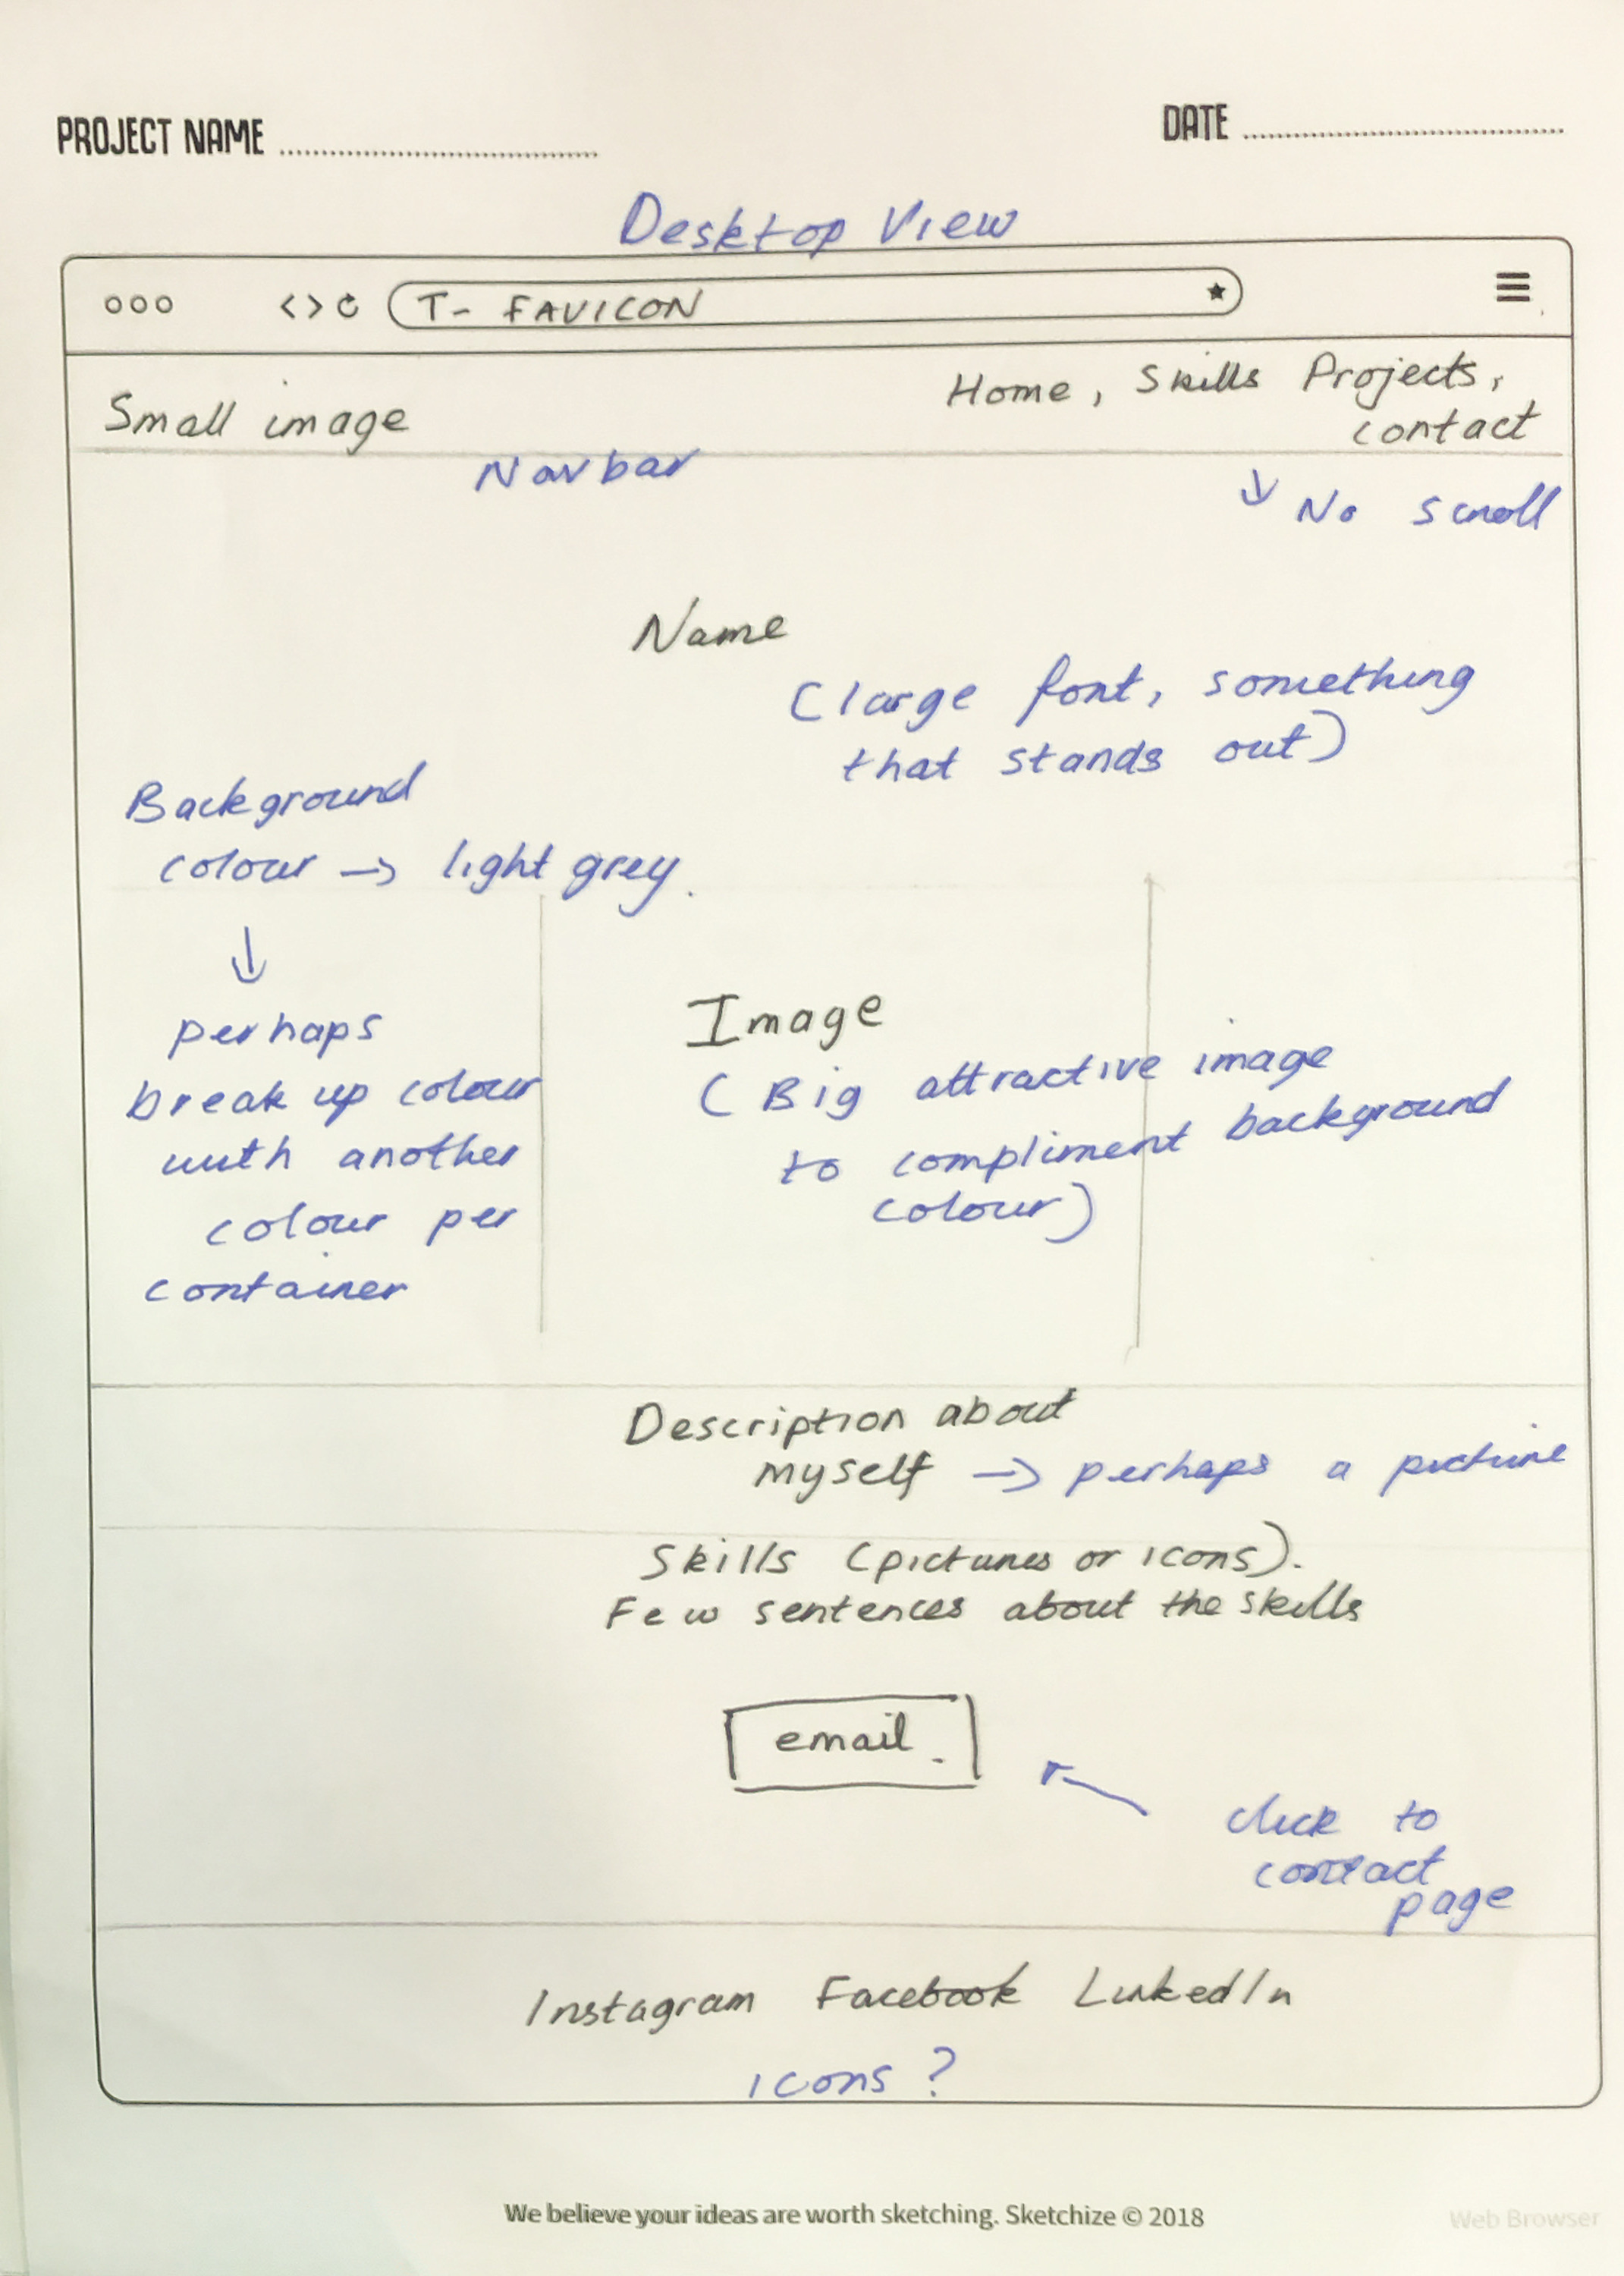 PROJECT NAME
DATE
Desktop View
T- FAVICON
Small image
Home, Skills Projects,
contact
Navbar
↓ No scroll
Name
(large font, something
that stands out)
Background
colour → light grey.
↓
perhaps
break up colour
with another
colour per
container
Image
(Big attractive image
to compliment background
colour)
Description about
myself → perhaps a picture
Skills (pictures or icons).
Few sentences about the skills
email.
click to
contact
page
Instagram Facebook LinkedIn
icons?
We believe your ideas are worth sketching. Sketchize © 2018
Web Browser